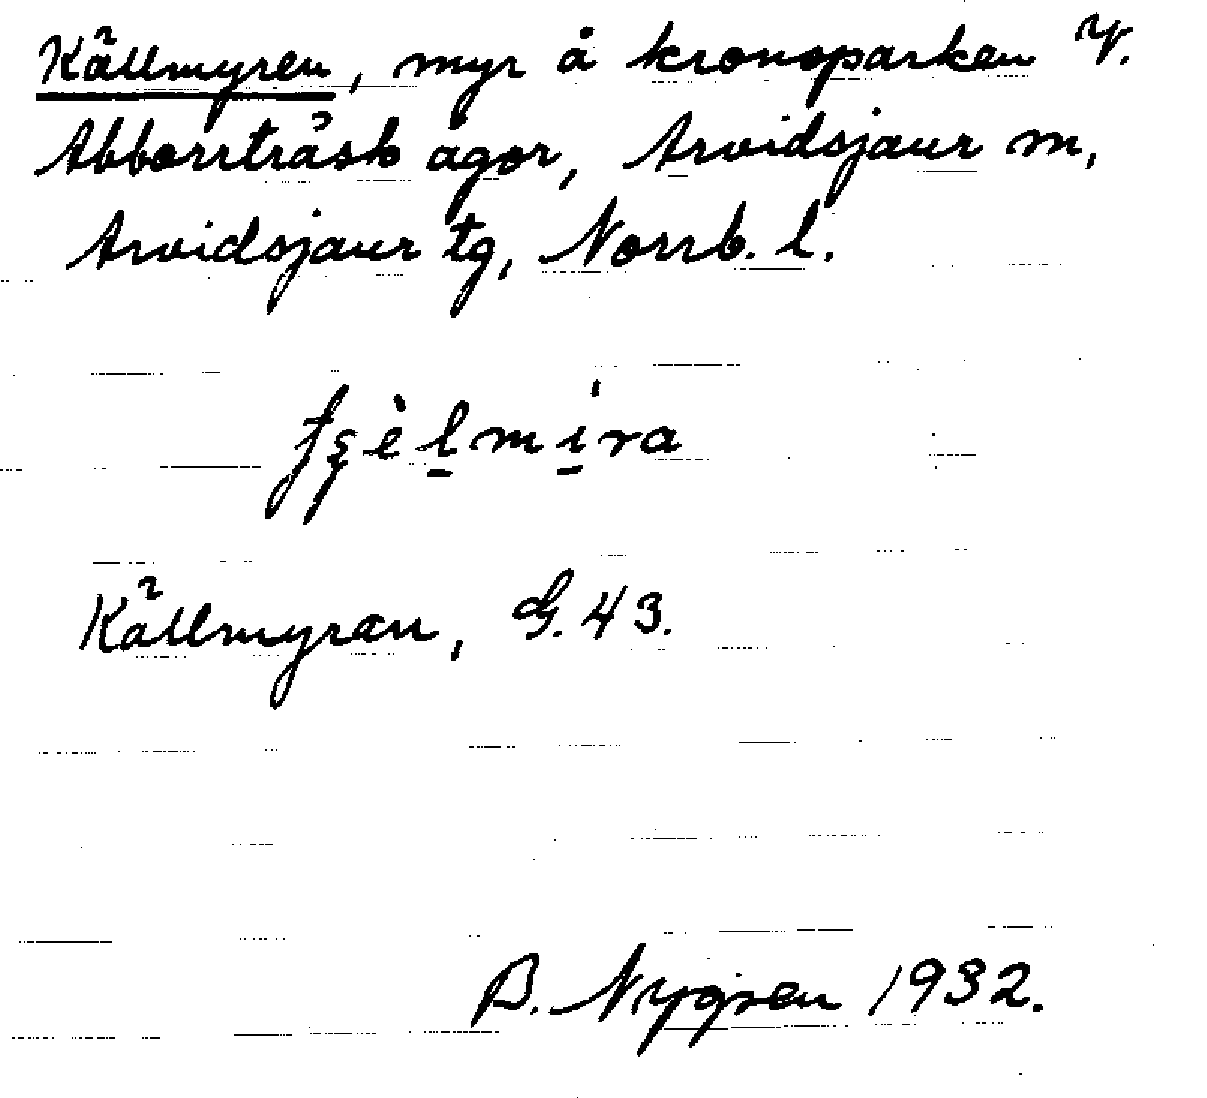 Källmyren, myr å kronoparken V.
Abborrträsk ägor, Arvidsjaur sn,
Arvidsjaur tg, Norrb. l.
Källmyran, G. 43.
B. Nygren 1932.